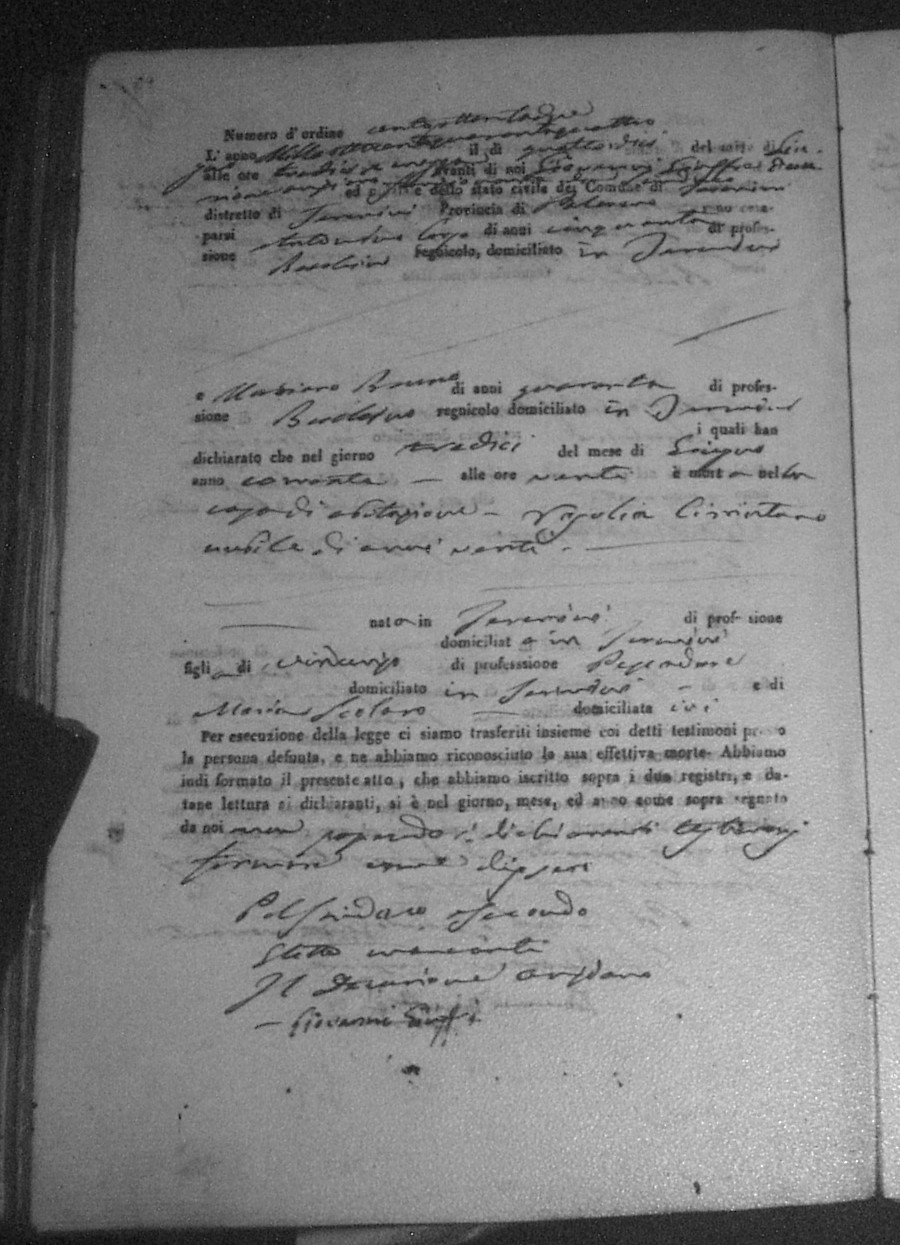 Numero d'ordine centottantadue
L'anno Mille ottocento quarantaquattro il dì quattordici del mese di Giu-
gno alle ore tredici avanti di noi Giovanni Gioffrè Decu-
rione ed del stato civile del Comune di Termini
distretto di Termini Provincia di Palermo sono com-
parsi Antonino Lopo di anni cinquanta di profes-
sione Becchino regnicolo, domiciliato in Termini
e Mariano Bruno di anni quaranta di profes-
sione Becchino regnicolo domiciliato in Termini
i quali han
dichiarato che nel giorno tredici del mese di Giugno
anno corrente - alle ore venti è morta nella
casa di abitazione - Rosalia
nubile di anni venti -
nata in Termini di professione
domiciliata in Termini
figlia di Vincenzo di professsione
domiciliato in Termini - e di
Maria Scolaro domiciliata ivi
Per esecuzione della legge ci siamo trasferiti insieme coi detti testimoni presso
la persona defunta, e ne abbiamo riconosciuto la sua effettiva morte. Abbiamo
indi formato il presente atto, che abbiamo iscritto sopra i due registri, e da-
tane lettura ai dichiaranti, si è nel giorno, mese, ed anno come sopra segnato
da noi non sapendo i dichiaranti
firmare come dissero
Pel Sindaco e Secondo
Eletto mancanti
Il Decurione Anziano
- Giovanni Gioffrè